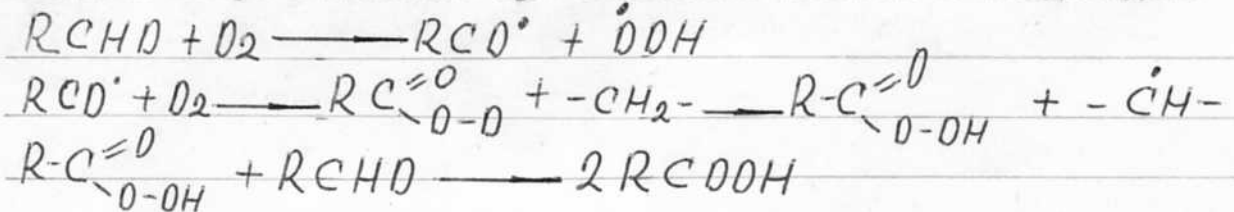 RCHO + O2 ⟶ RCO• + •OOH
RCO• + O2 ⟶ RC(=O)(O-O) + -CH2- ⟶ R-C(=O)(O-OH) + -ĊH-
R-C(=O)(O-OH) + RCHO ⟶ 2RCOOH